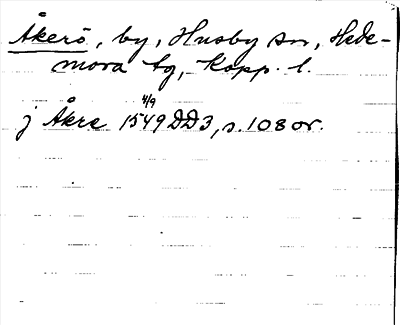 Åkerö, by, Husby sn, Hede-
mora tg, Kopp. l.
j Åkre 1549 4/9 DD3, s. 108 or.